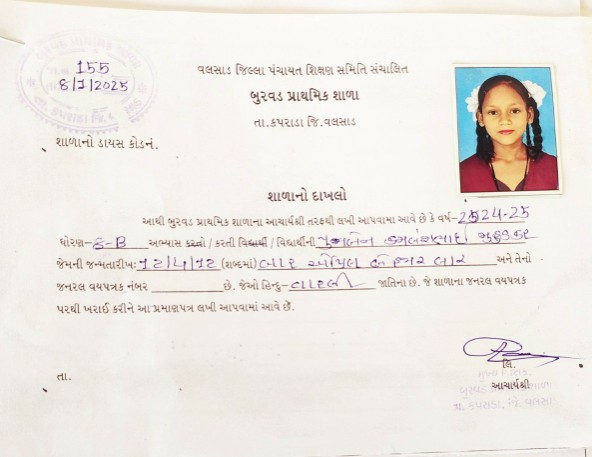 155
8/7/2025
વલસાડ જિલ્લા પંચાયત શિક્ષણ સમિતિ સંચાલિત
બુરવડ પ્રાથમિક શાળા
તા.કપરાડા જિ.વલસાડ
શાળાનો ડાયસ કોડનં.
શાળાનો દાખલો
આથી બુરવડ પ્રાથમિક શાળાના આચાર્યશ્રી તરફથી લખી આપવામાં આવે છે કે વર્ષ-2024-25
ધોરણ- 8-B અભ્યાસ કરતો / કરતી વિદ્યાર્થી / વિદ્યાર્થીની
જેમની જન્મતારીખઃ 12/4/12 (શબ્દમાં) બાર એપ્રિલ બે હજાર બાર અને તેનો
જનરલ વયપત્રક નંબર છે. જેઓ હિન્દુ- વારલી જાતિના છે. જે શાળાના જનરલ વયપત્રક
પરથી ખરાઈ કરીને આ પ્રમાણપત્ર લખી આપવામાં આવે છે.
લિ.
આચાર્યશ્રી
બુરવડ
તા. કપરાડા, જિ. વલસાડ
તા.